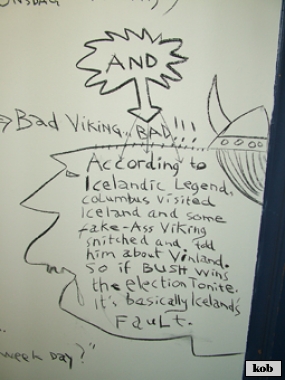 ONSDAG
AND
Bad Viking.. BAD!!!
According to
Icelandic Legend,
columbus visited
Iceland and some
fake-Ass Viking
snitched and told
him about Vinland.
So if BUSH wins
the election Tonite.
It's basically Iceland's
Fault.
week day?"
kob